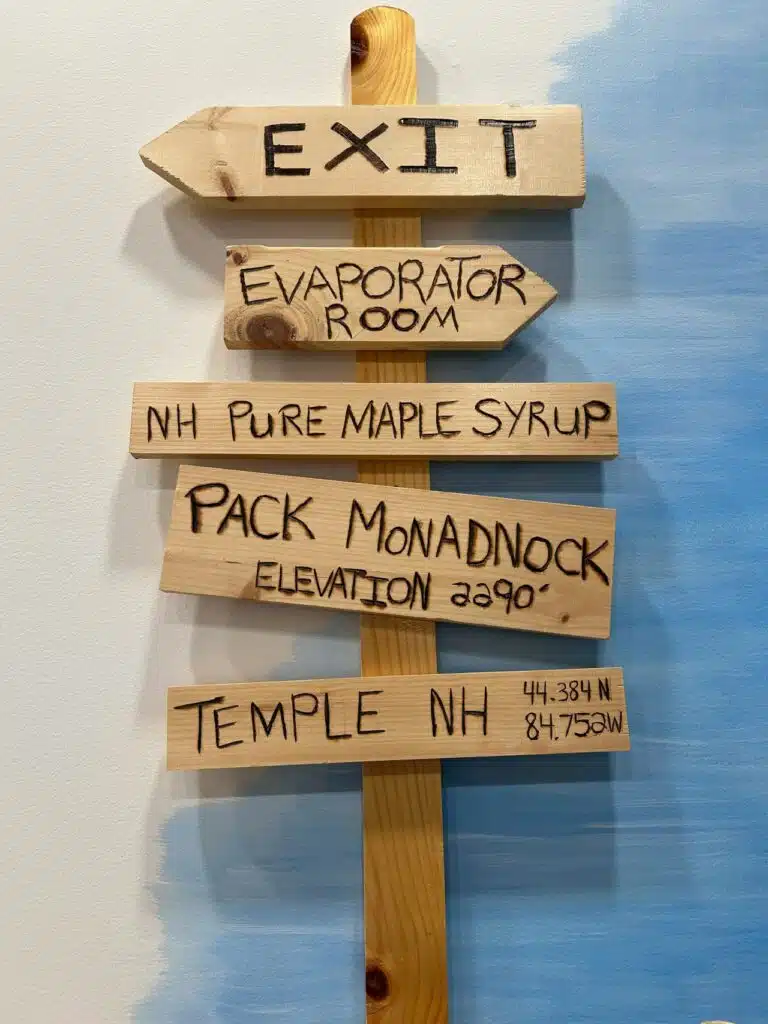 EXIT
EVAPORATOR
ROOM
NH PURE MAPLE SYRUP
PACK MONADNOCK
ELEVATION 2290'
TEMPLE NH
44.384 N
84.752W